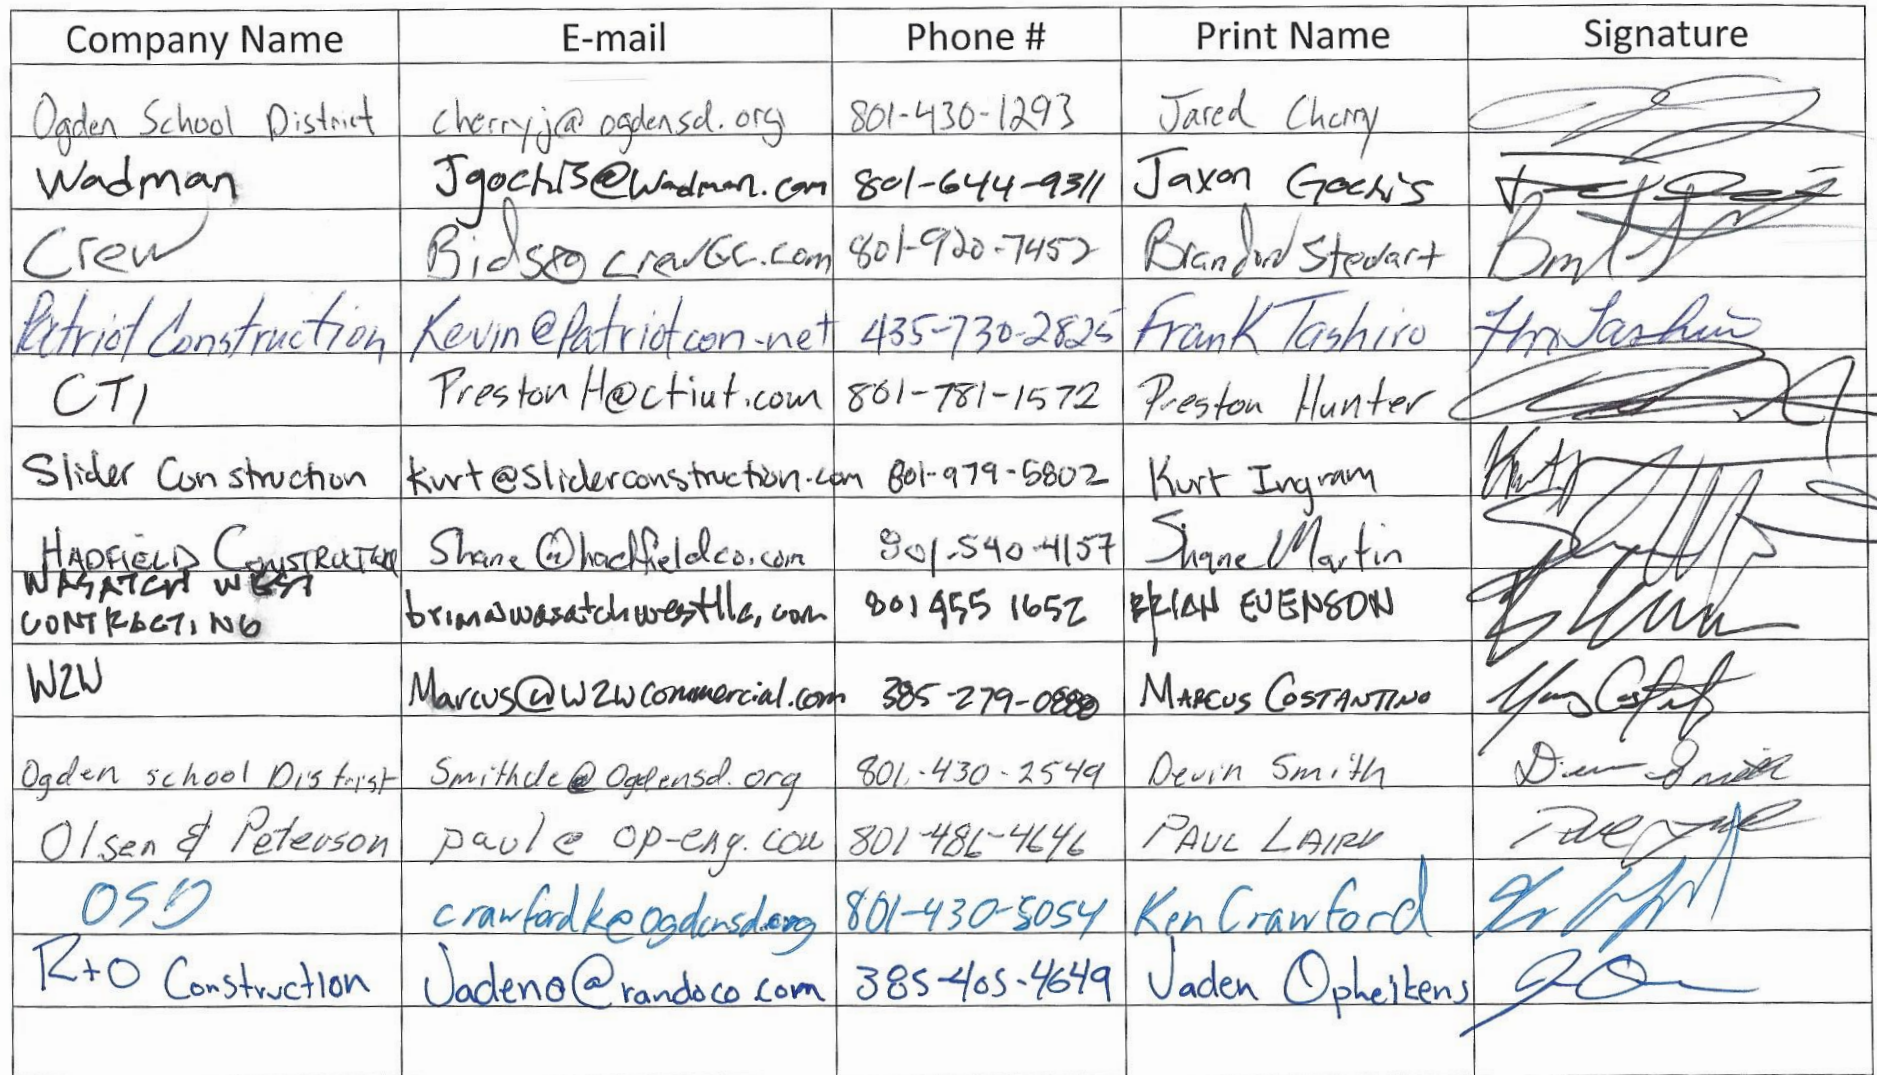 Company Name E-mail Phone # Print Name Signature
Ogden School District cherryj@ogdensd.org 801-430-1293 Jared Cherry
Wadman Jgochis@wadman.com 801-644-9311 Jaxon Gochis
Crew Bids@crewGC.com 801-920-7452 Brandon Stewart
Patriot Construction Kevin@Patriotcon.net 435-730-2825 Frank Tashiro
CTI PrestonH@ctiut.com 801-781-1572 Preston Hunter
Slider Construction kurt@sliderconstruction.com 801-979-5802 Kurt Ingram
HADFIELD CONSTRUCTION Shane@hadfieldco.com 801-540-4157 Shane Martin
WASATCH WEST
CONTRACTING brian@wasatchwestllc.com 801 455 1652 BRIAN EVENSON
W2W Marcus@W2Wcommercial.com 385-279-0880 MARCUS COSTANTINO
Ogden school District Smithde@Ogdensd.org 801-430-2549 Devin Smith
Olsen & Peterson paul@op-eng.com 801-486-4646 PAUL LAIRD
OSD crawfordk@ogdensd.org 801-430-5054 Ken Crawford
R+O Construction Jadeno@randoco.com 385-405-4649 Jaden Opheikens